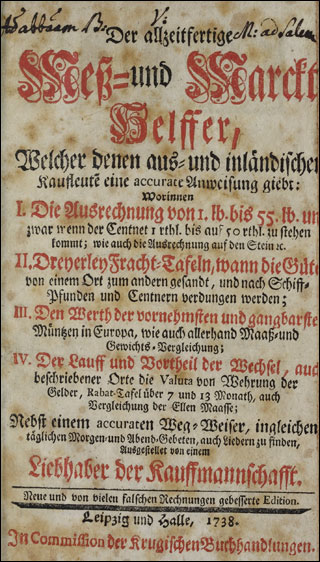 Der allzeitfertige
Meß- und Marckt
Helffer,
Welcher denen aus- und inländischen
Kaufleute eine accurate Anweisung giebt:
Worinnen
I. Die Ausrechnung von 1. lb. bis 55. lb. un
zwar wenn der Centnet 1 rthl. bis auf 50 rthl. zu stehen
kommt; wie auch die Ausrechnung auf den Stein ꝛc.
II. Dreyerley Fracht-Tafeln, wann die Güte
von einem Ort zum andern gesandt, und nach Schiff-
Pfunden und Centnern verdungen werden;
III. Den Werth der vornehmsten und gangbarste
Müntzen in Europa, wie auch allerhand Maaß- und
Gewichts-Vergleichung;
IV. Der Lauff und Vortheil der Wechsel, auch
beschriebener Orte die Valuta von Wehrung der
Gelder, Rabat-Tafel über 7 und 13 Monath, auch
Vergleichung der Ellen Maasse;
Nebst einem accuraten Weg-Weiser, ingleichen
täglichen Morgen- und Abend-Gebeten, auch Liedern zu finden,
Ausgestellet von einem
Liebhaber der Kauffmannschafft.
Neue und von vielen falschen Rechnungen gebesserte Edition.
Leipzig und Halle, 1738.
In Commission der Krugischen Buchhandlungen.